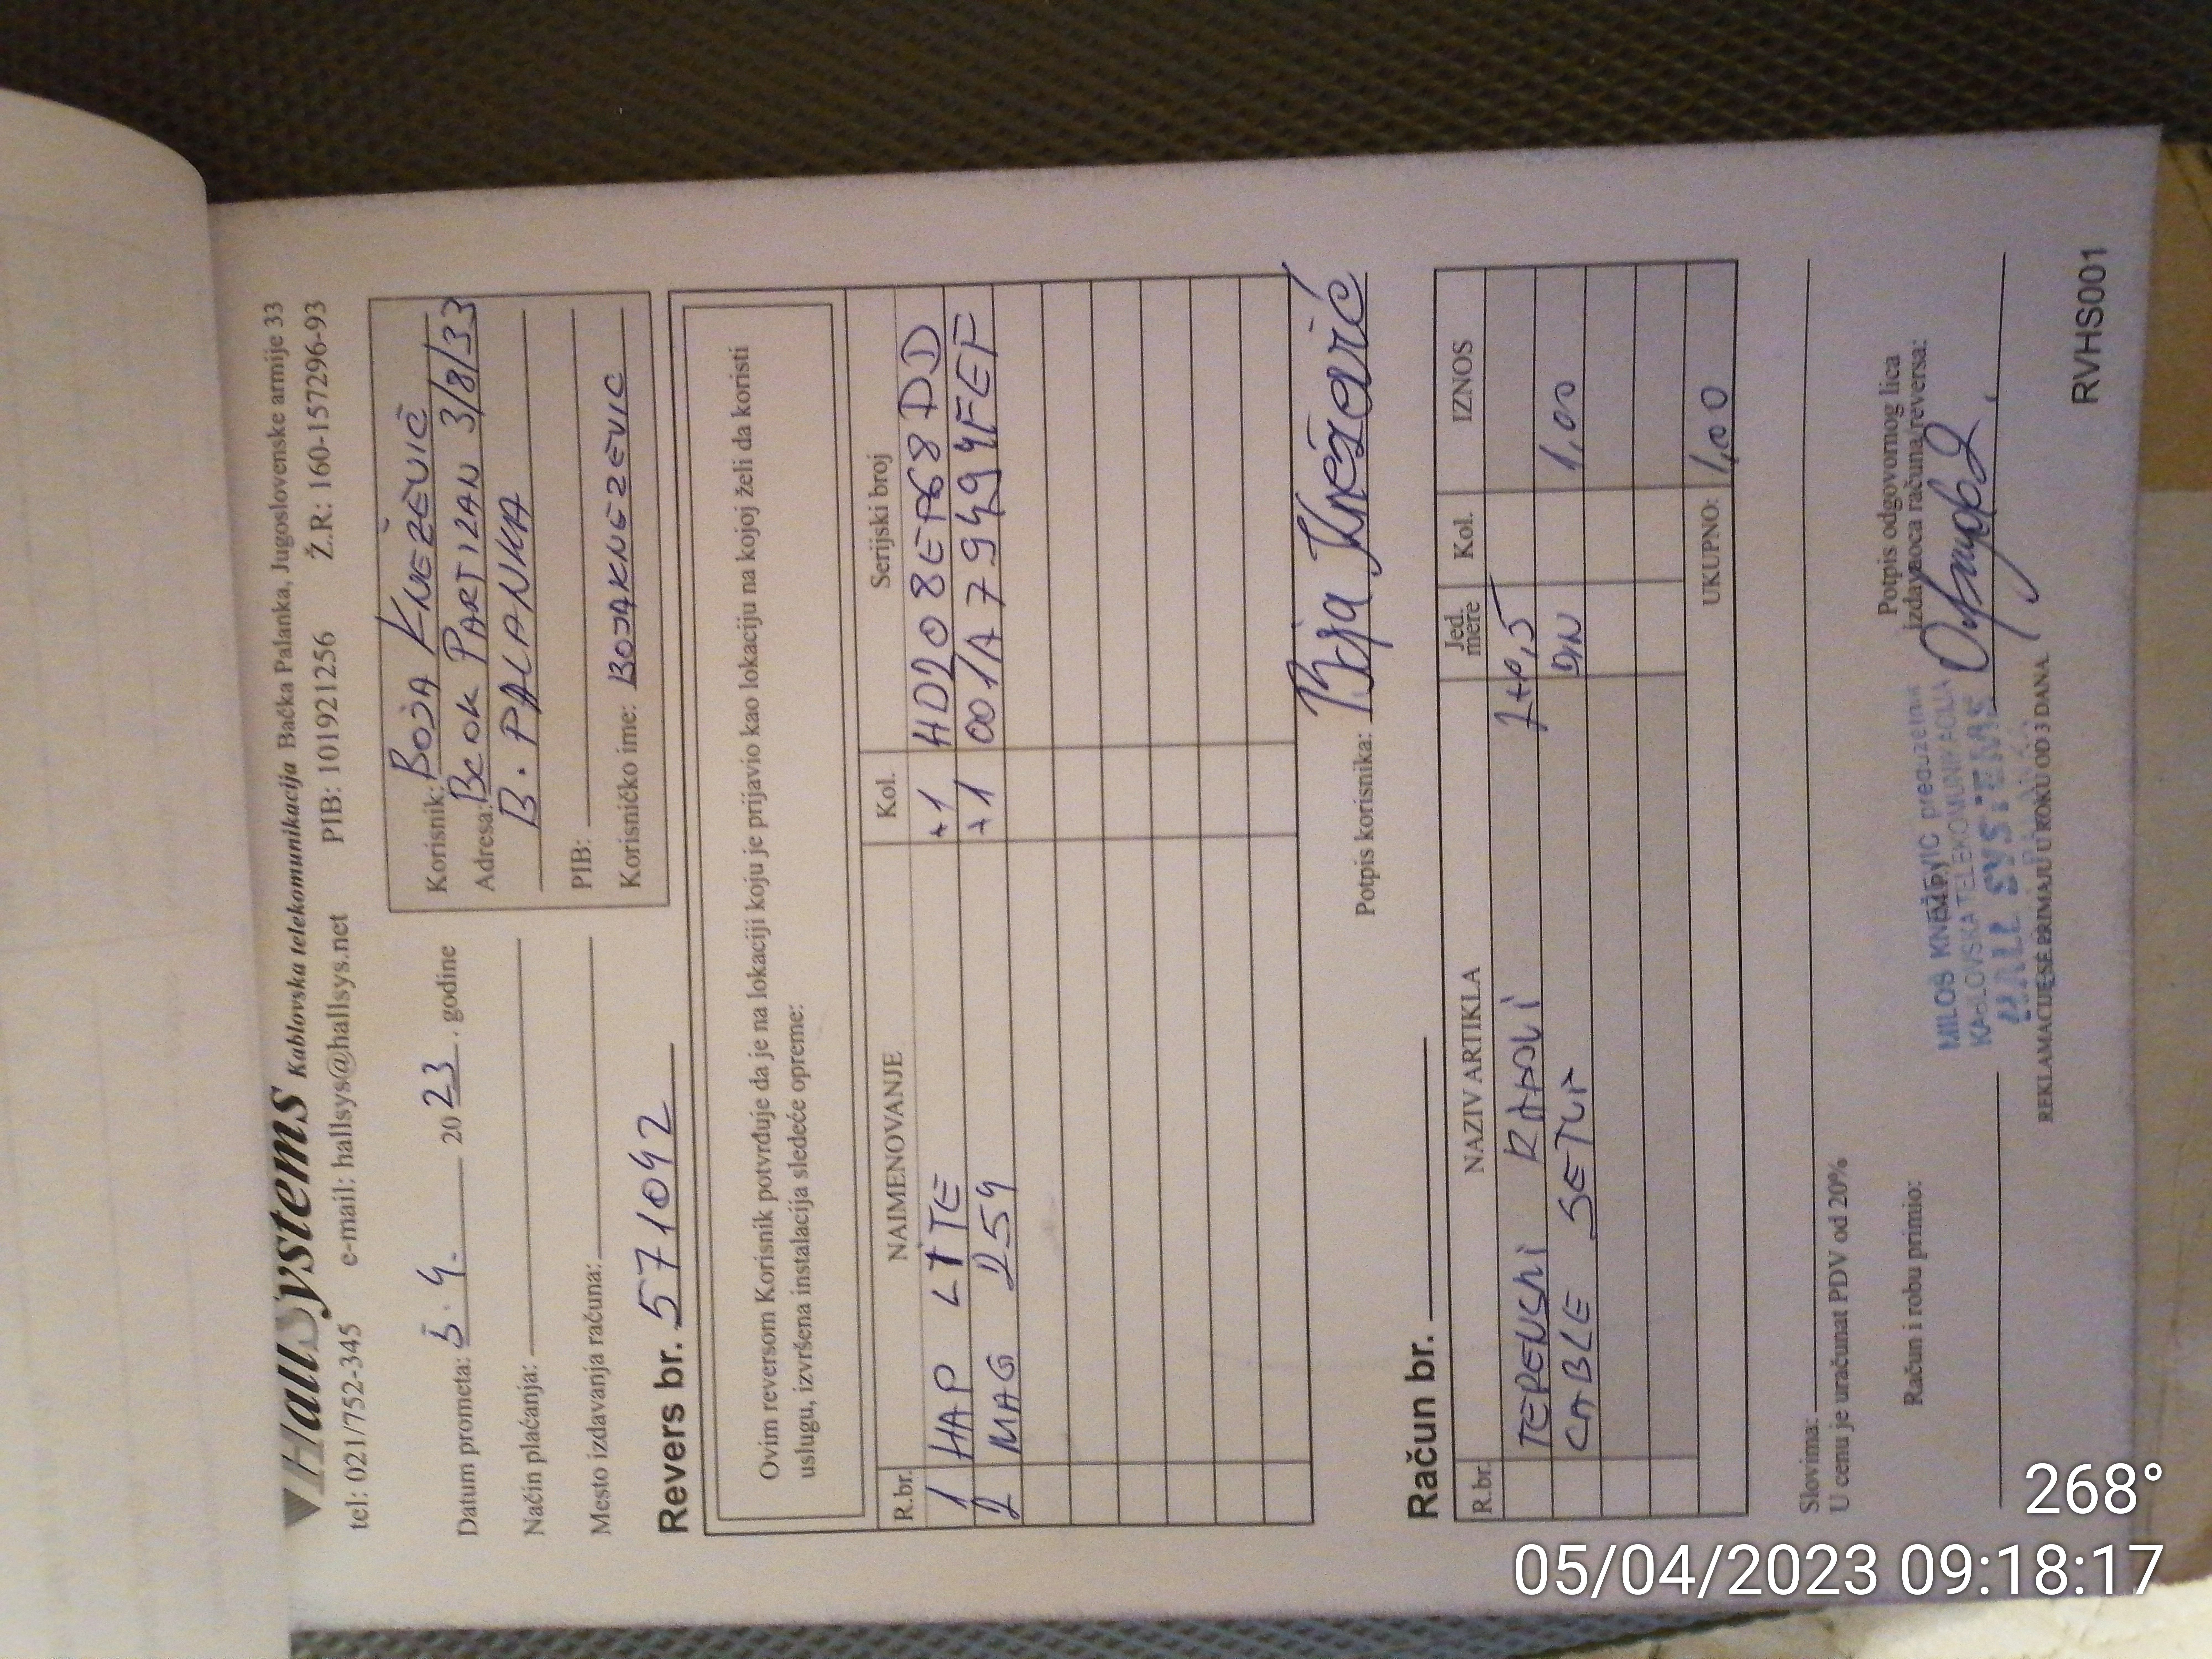 HallSystems Kablovska telekomunikacija Bačka Palanka, Jugoslovenske armije 33
tel: 021/752-345 e-mail: hallsys@hallsys.net PIB: 101921256 Ž.R.: 160-157296-93
Datum prometa: 5.4. 2023. godine
Način plaćanja:
Mesto izdavanja računa:
Korisnik: BOJA KNEŽEVIĆ
Adresa: BLOK PARTIZAN 3/8/33
B. PALANKA
PIB:
Korisničko ime: BOJAKNEZEVIC
Revers br. 571042
Ovim reversom Korisnik potvrđuje da je na lokaciji koju je prijavio kao lokaciju na kojoj želi da koristi
uslugu, izvršena instalacija sledeće opreme:
R.br. NAIMENOVANJE Kol. Serijski broj
1 HAP LITE +1
2 MAG 254 +1 001A79494FEF
Potpis korisnika: Boja Knežević
Račun br.
R.br. NAZIV ARTIKLA Jed. mere Kol. IZNOS
ТЕРЕНСКИ РАДОВИ
CABLE SETUP DIN 1,00
UKUPNO: 1,00
Slovima:
U cenu je uračunat PDV od 20%
Račun i robu primio:
Potpis odgovornog lica
izdavaoca računa/reversa:
MILOŠ KNEŽEVIĆ preduzetnik
KABLOVSKA TELEKOMUNIKACIJA
HALL SYSTEMS
REKLAMACIJE SE PRIMAJU U ROKU OD 3 DANA.
RVHS001
268°
05/04/2023 09:18:17